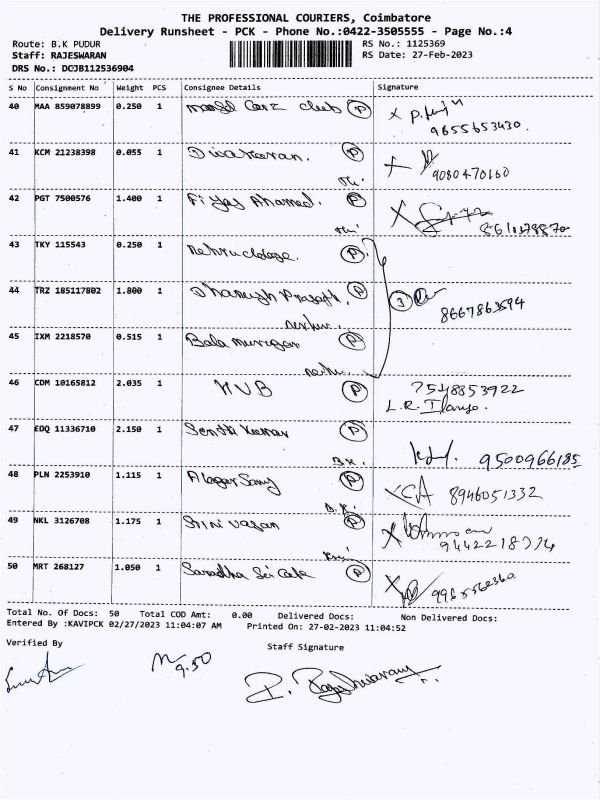 THE PROFESSIONAL COURIERS, Coimbatore
Delivery Runsheet - PCK - Phone No.:0422-3505555 - Page No.:4
Route: B.K PUDUR
RS No.: 1125369
Staff: RAJESWARAN
RS Date: 27-Feb-2023
DRS No.: DCJB112536904
S No Consignment No Weight PCS Consignee Details Signature
40 MAA 859078899 0.250 1 Carz club P
9655653430.
41 KCM 21238398 0.055 1 Diwakaran. P
9080470160
42 PGT 7500576 1.400 1 Fiyas Ahamed. P
43 TKY 115543 0.250 1 P
44 TRZ 185117802 1.800 1 Dhanush P 3
8667863594
45 IXM 2218570 0.515 1 Bala murugan P
46 CDM 10165812 2.035 1 HUB P 7548853922
L.R. Ilango.
47 EDQ 11336710 2.150 1 Senthil Kumar P
B.K. 9500966185
48 PLN 2253910 1.115 1 Alagar Samy P 8946051332
B.K.
49 NKL 3126708 1.175 1 Srini vasan P
50 MRT 268127 1.050 1 Saradha P
Total No. Of Docs: 50 Total COD Amt: 0.00 Delivered Docs: Non Delivered Docs:
Entered By :KAVIPCK 02/27/2023 11:04:07 AM Printed On: 27-02-2023 11:04:52
Verified By
Staff Signature
9.50
P. Rajeshwaran